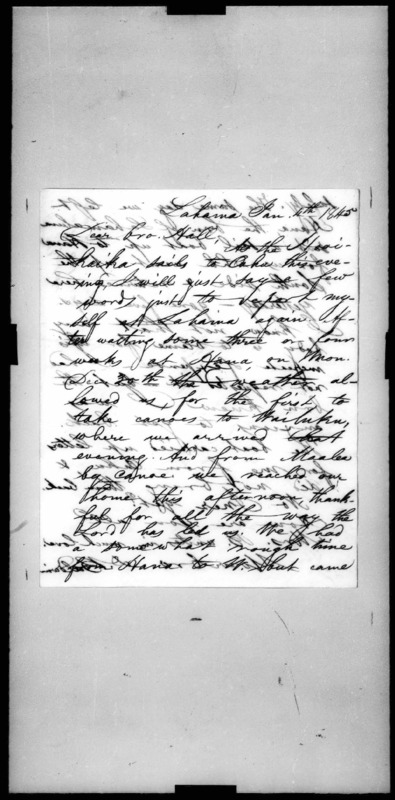 Lahaina Jan. 4th 1845
Dear Bro. Hall,
As the
sails to Oahu this eve-
ning, I will just say a few
words just to report my-
self at Lahaina again. Af-
ter waiting some three or four
weeks at Hana, on Mon.
Dec. 30th the weather al-
lowed us for the first to
take canoes to Wailuku,
where we arrived that
evening. And from Maalea
by canoe we reached our
home this afternoon, thank-
ful for all the way the
Lord has led us. We had
a somewhat rough time
from Hana to W. but came